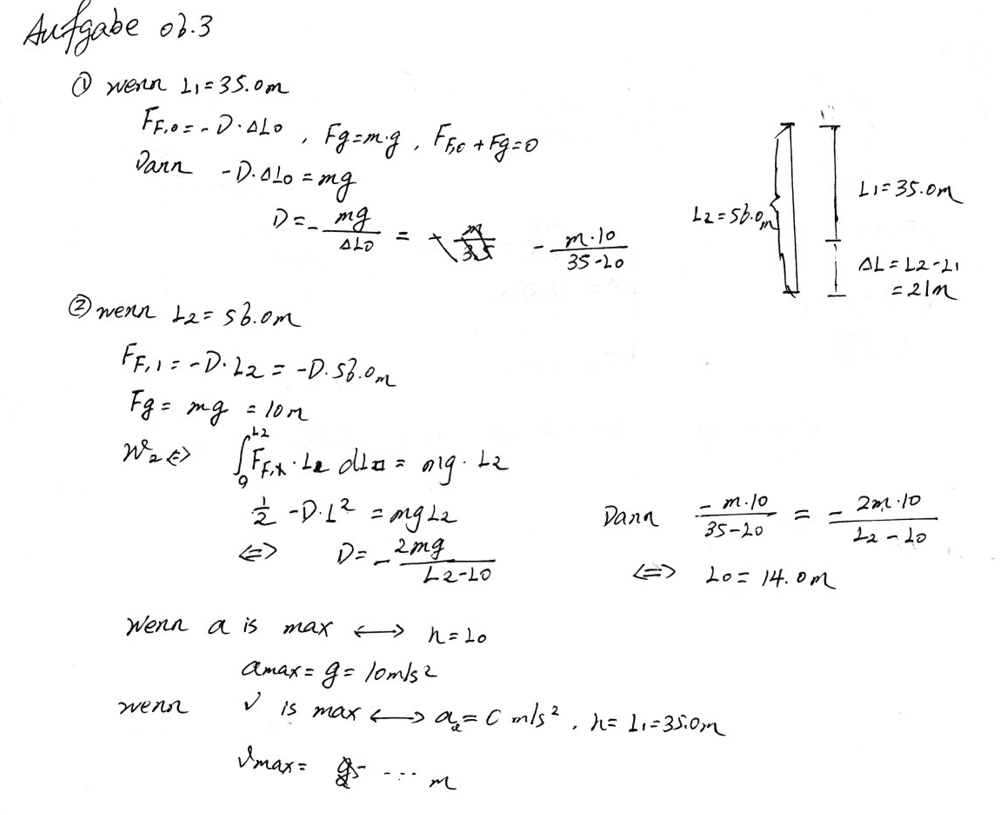 Aufgabe 06.3
① wenn L1=35.0m
FF,0=-D·ΔL0 , Fg=m·g , FF,0+Fg=0
Dann -D·ΔL0=mg
D=-mg/ΔL0 = -m·10/35-L0
L2=56.0m
L1=35.0m
ΔL=L2-L1
=21m
② wenn L2=56.0m
FF,1=-D·L2=-D·56.0m
Fg=mg=10m
W2⇔ ∫0^L2 FF,1·L2 dL=mg·L2
1/2 -D·L²=mgL2
⇔ D=-2mg/L2-L0
Dann -m·10/35-L0 = -2m·10/L2-L0
⇔ L0=14.0m
wenn a is max ⟷ h=L0
amax=g=10m/s²
wenn v is max ⟷ a=0 m/s² , h=L1=35.0m
vmax= ... m